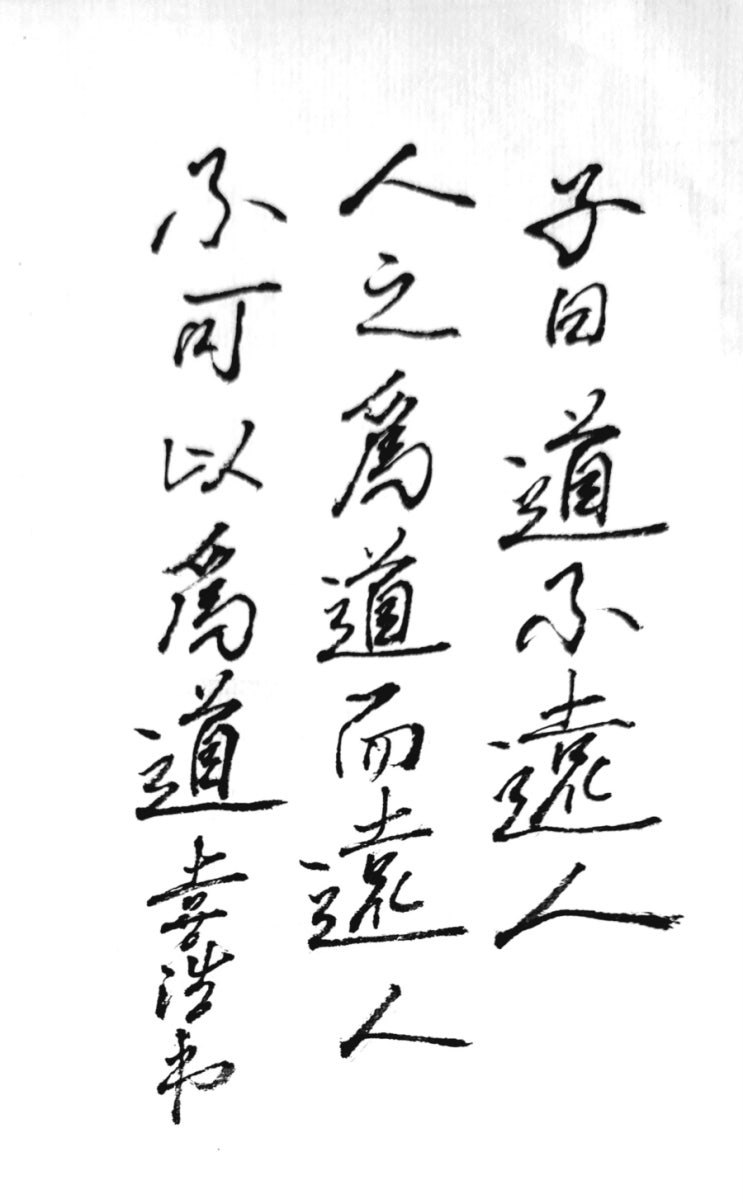 子曰道不遠人
人之為道而遠人
不可以為道喜浩书